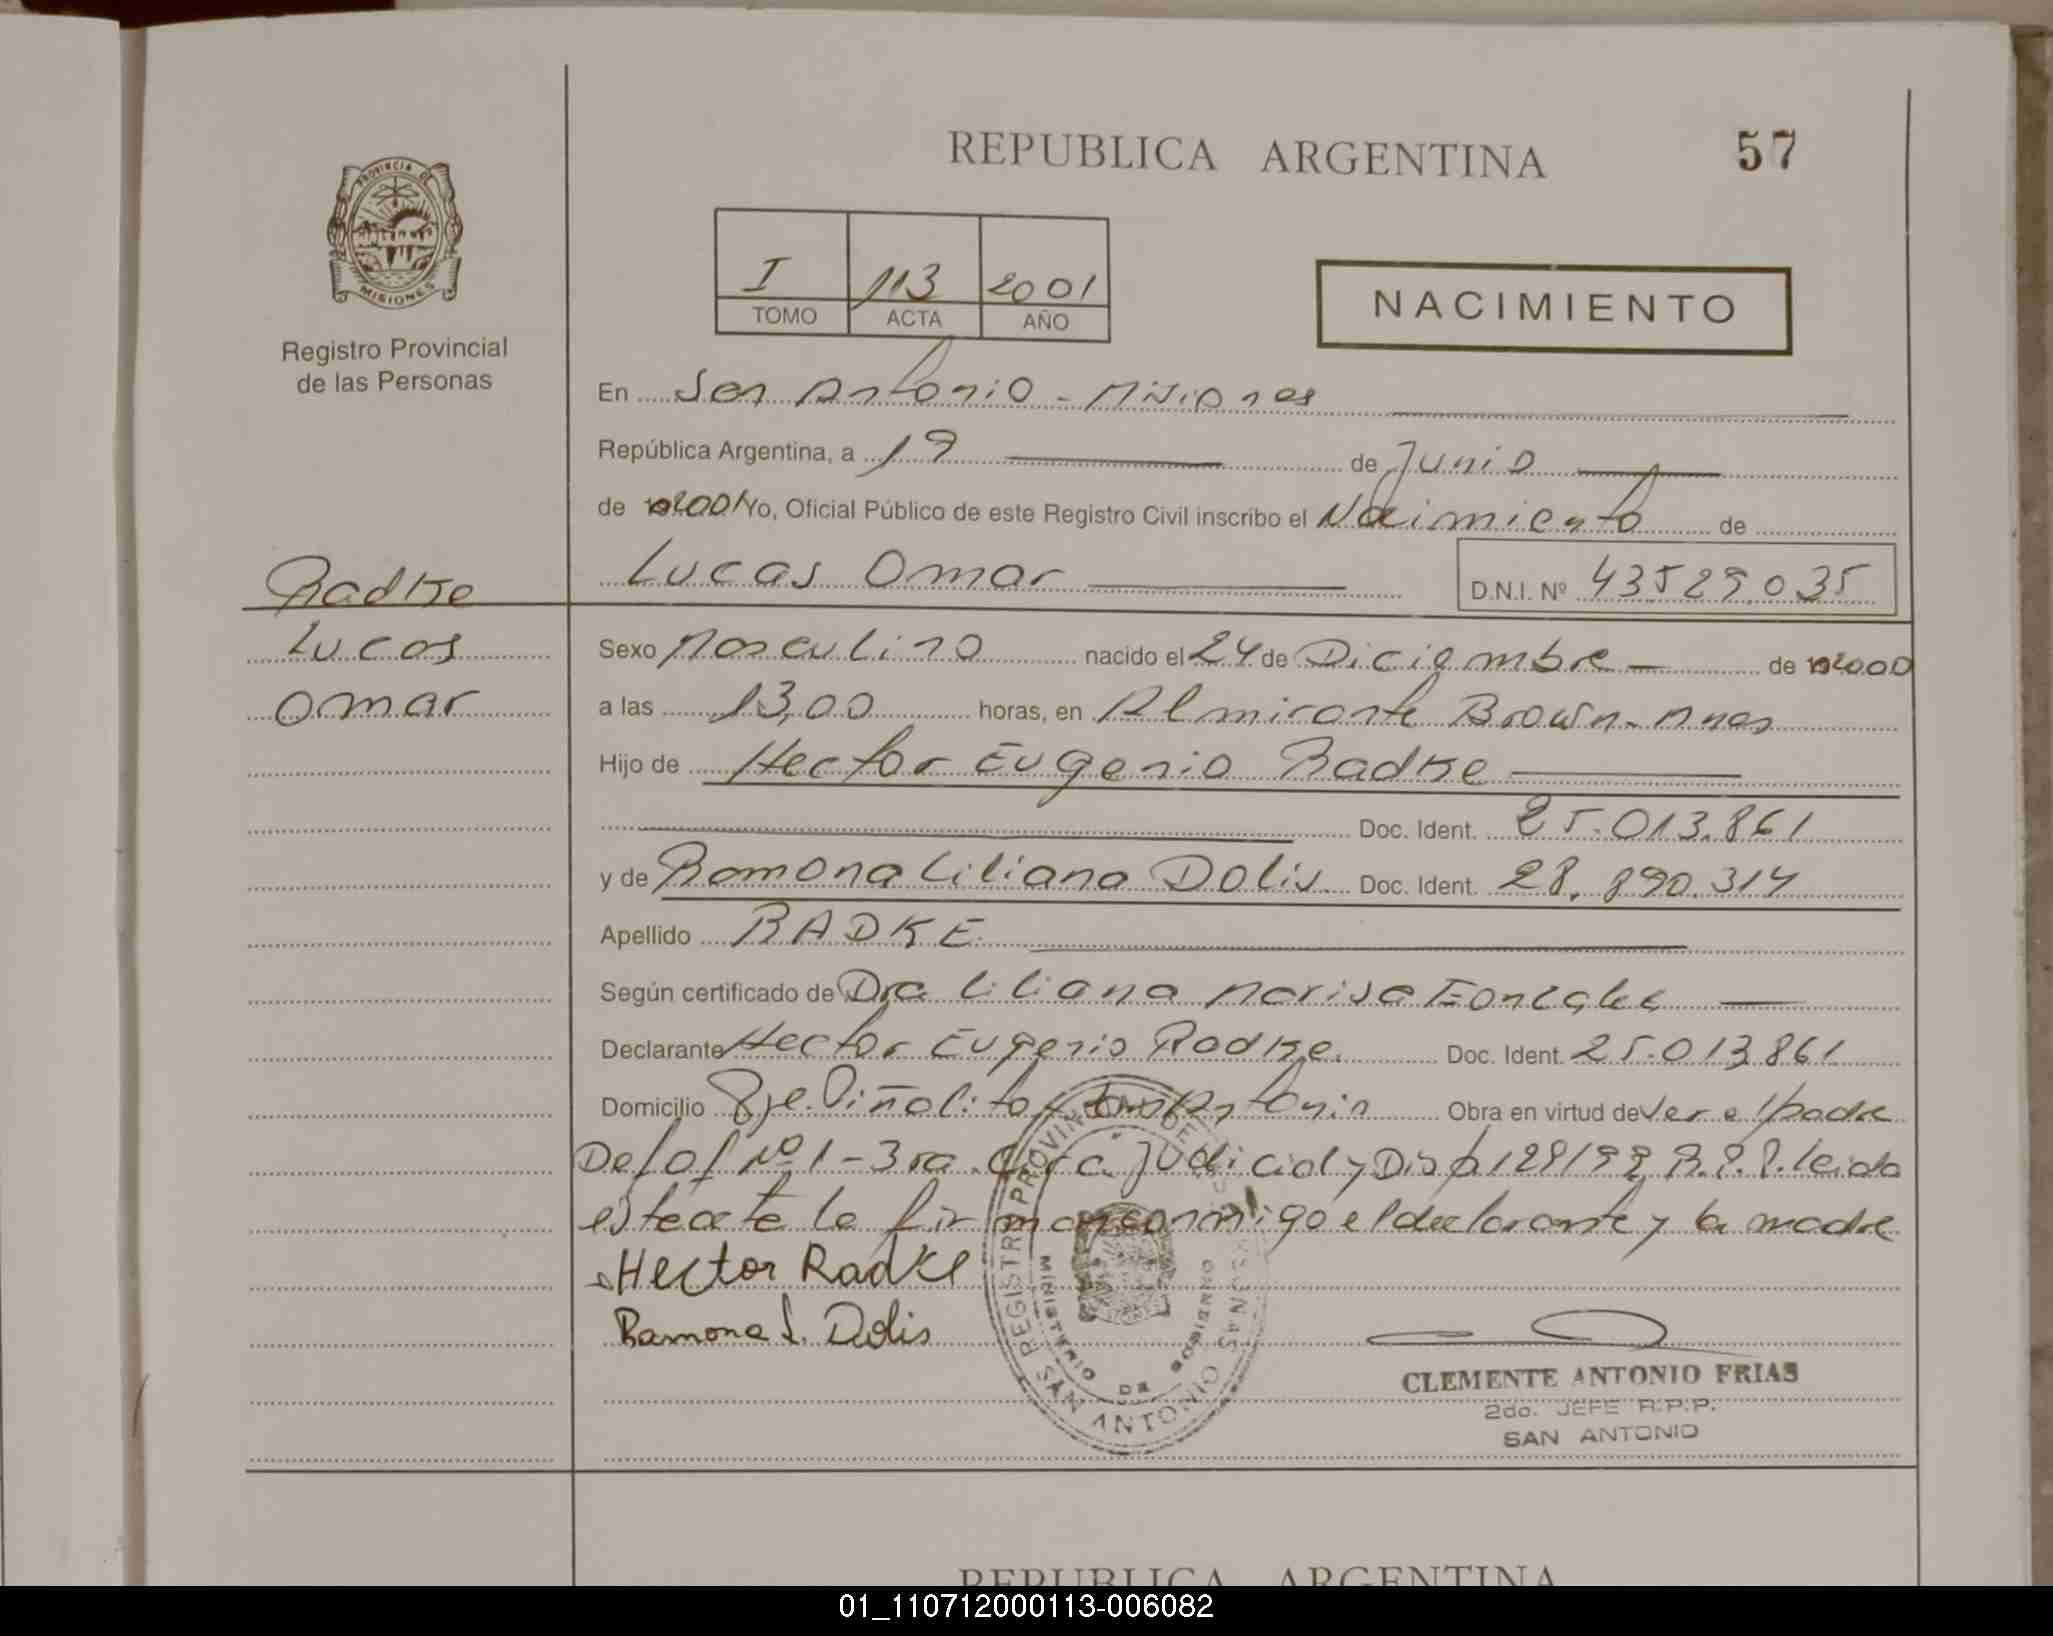 REPUBLICA ARGENTINA
57
PROVINCIA DE
MISIONES
Registro Provincial
de las Personas
I 113 2001
TOMO ACTA AÑO
NACIMIENTO
En San Antonio - Misiones
República Argentina, a 19 de Junio
de 2001 Yo, Oficial Público de este Registro Civil inscribo el Nacimiento de
Radke
Lucas Omar D.N.I. Nº 43529.035
Lucas
Sexo Masculino nacido el 24 de Diciembre - de 2000
Omar
a las 13,00 horas, en Almirante Brown - Mnes
Hijo de Hector Eugenio Radke
Doc. Ident. 25.013.861
y de Ramona Liliana Dolis Doc. Ident. 28.890.314
Apellido RADKE
Según certificado de Dra Liliana Marisa Gonzalez
Declarante Hector Eugenio Radke. Doc. Ident. 25.013.861
Domicilio Pje. Piñalito San Antonio Obra en virtud de ser el padre
Del of Nº 1 - 3ra. Judicial y Disp 128/99 R.P.P. leida
este acta la firman conmigo el declarante y la madre
Hector Radke
Ramona L. Dolis
REGISTRO PROVINCIAL DE LAS PERSONAS
MINISTERIO DE GOBIERNO
SAN ANTONIO
CLEMENTE ANTONIO FRIAS
2do. JEFE R.P.P.
SAN ANTONIO
REPUBLICA ARGENTINA
01_110712000113-006082